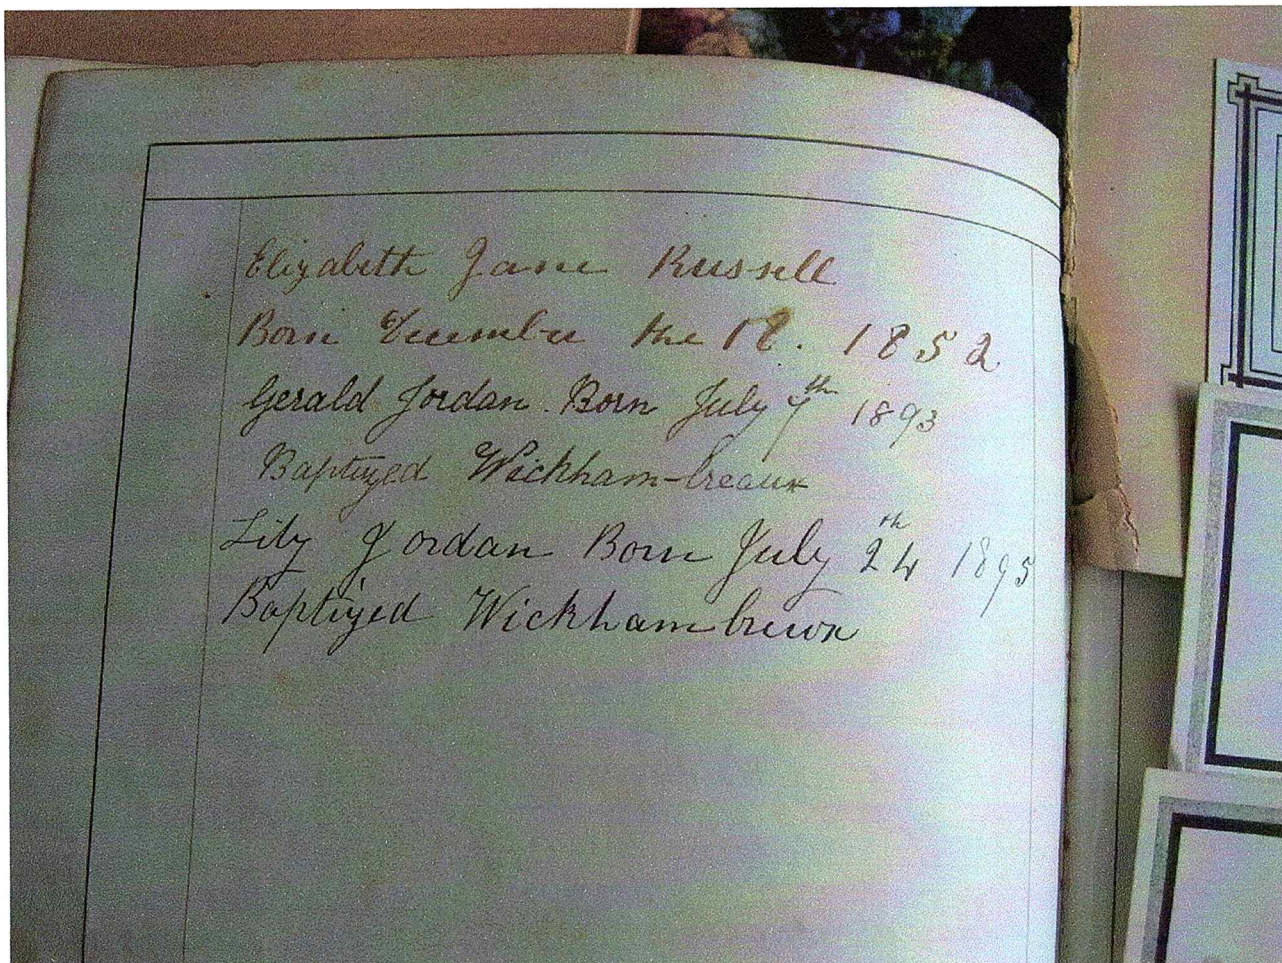 Elizabeth Jane Russell
Born December the 18. 1852
Gerald Jordan. Born July 7th 1893
Baptized Wickham-breaux
Lily Jordan Born July 24th 1895
Baptized Wickhambreux